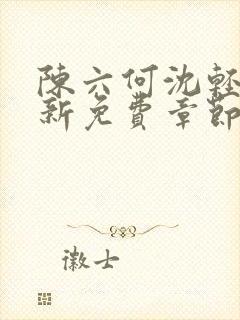 陳六何沈輕
新免費章節
徽士